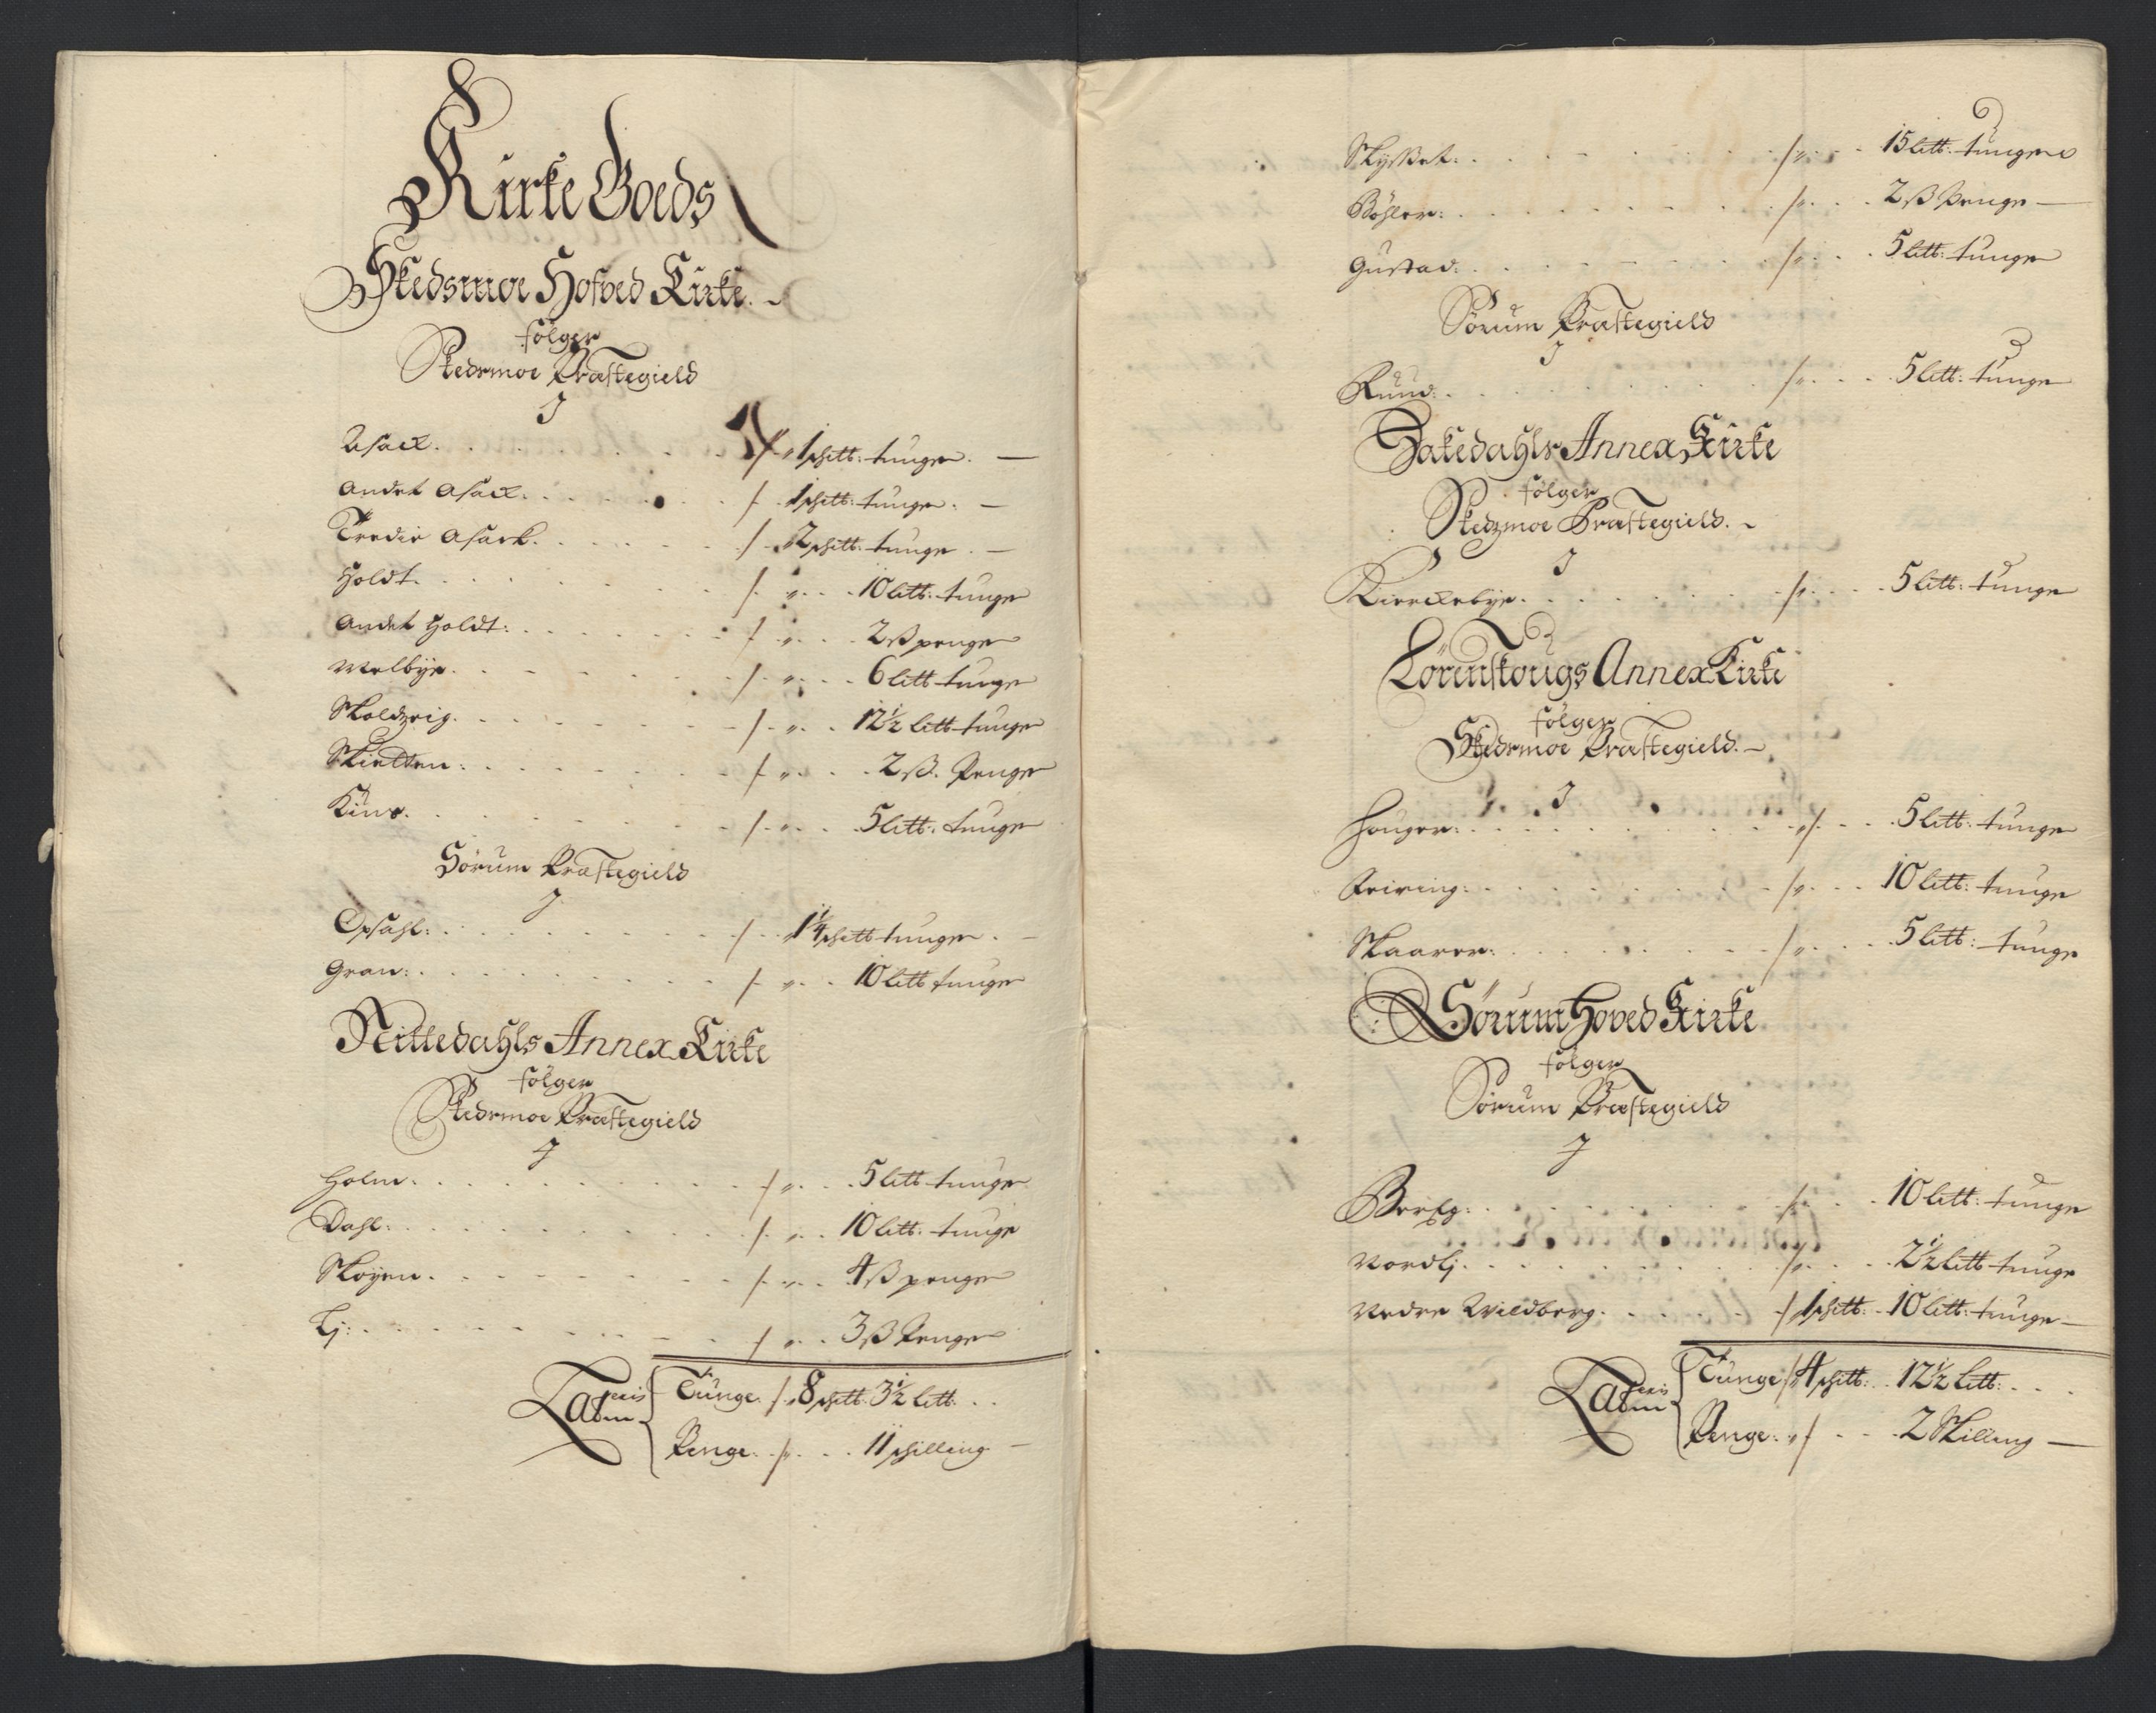 Kirke Goeds
Skedsmoe Hofved Kirke.
følger
Skedsmoe Præstegield
J
Asack. . . . 1 schtt: tunger. —
Andet Asack. . . . 1 schtt: tunger. —
Tredie Asack. . . . 2 schtt. tunge. —
Holdt. . . . 10 litt: tunge
Andet Holdt: . . . 2 ß penge
Melbye. . . . 6 litt tunge
Skoldvig. . . . 12½ litt tunge
Skietten: . . . 2 ß. Penge
Riud. . . . 5 litt: tunge
Sørum Præstegield
J
Opsahl: . . . 1¼ schtt tunger. —
Gran: . . . 10 litt tunge
Nittedahls Annex Kirke
følger
Skedsmoe Præstegield
J
Holm. . . . 5 litt tunge
Dahl: . . . 10 litt: tunge
Skøyen. . . . 4 ß penge
Lj: . . . 3 ß Penge
Lateris Tunge 8 schtt 3½ litt. . .
Penge. . . . 11 schilling —
Skysset: . . . 15 litt: tunge
Bøhler: . . . 2 ß Penge —
Gustad: . . . 5 litt: tunge
Sørum Præstegield
J
Ruud: . . . 5 litt: tunge
Hakedahls Annex Kirke
følger
Skedzmoe Præstegield.
J
Kierckebye. . . . 5 litt: tunge
Lørenskougs Annex Kirke
følger
Skedsmoe Præstegield.
J
Houger: . . . 5 litt: tunge
10 litt: tunge
Skaarer: . . . 5 litt: tunge
Sørum Hoved Kirke
følger
Sørum Præstegield
J
Berg: . . . 10 litt: tunge
Nordlj. . . . 2½ litt tunge
Nedre Wildberg. . . . 1 schtt: 10 litt: tunge —
Lateris Tunge 4 schtt: 12½ litt: . . .
Penge: . . . 2 Skilling —